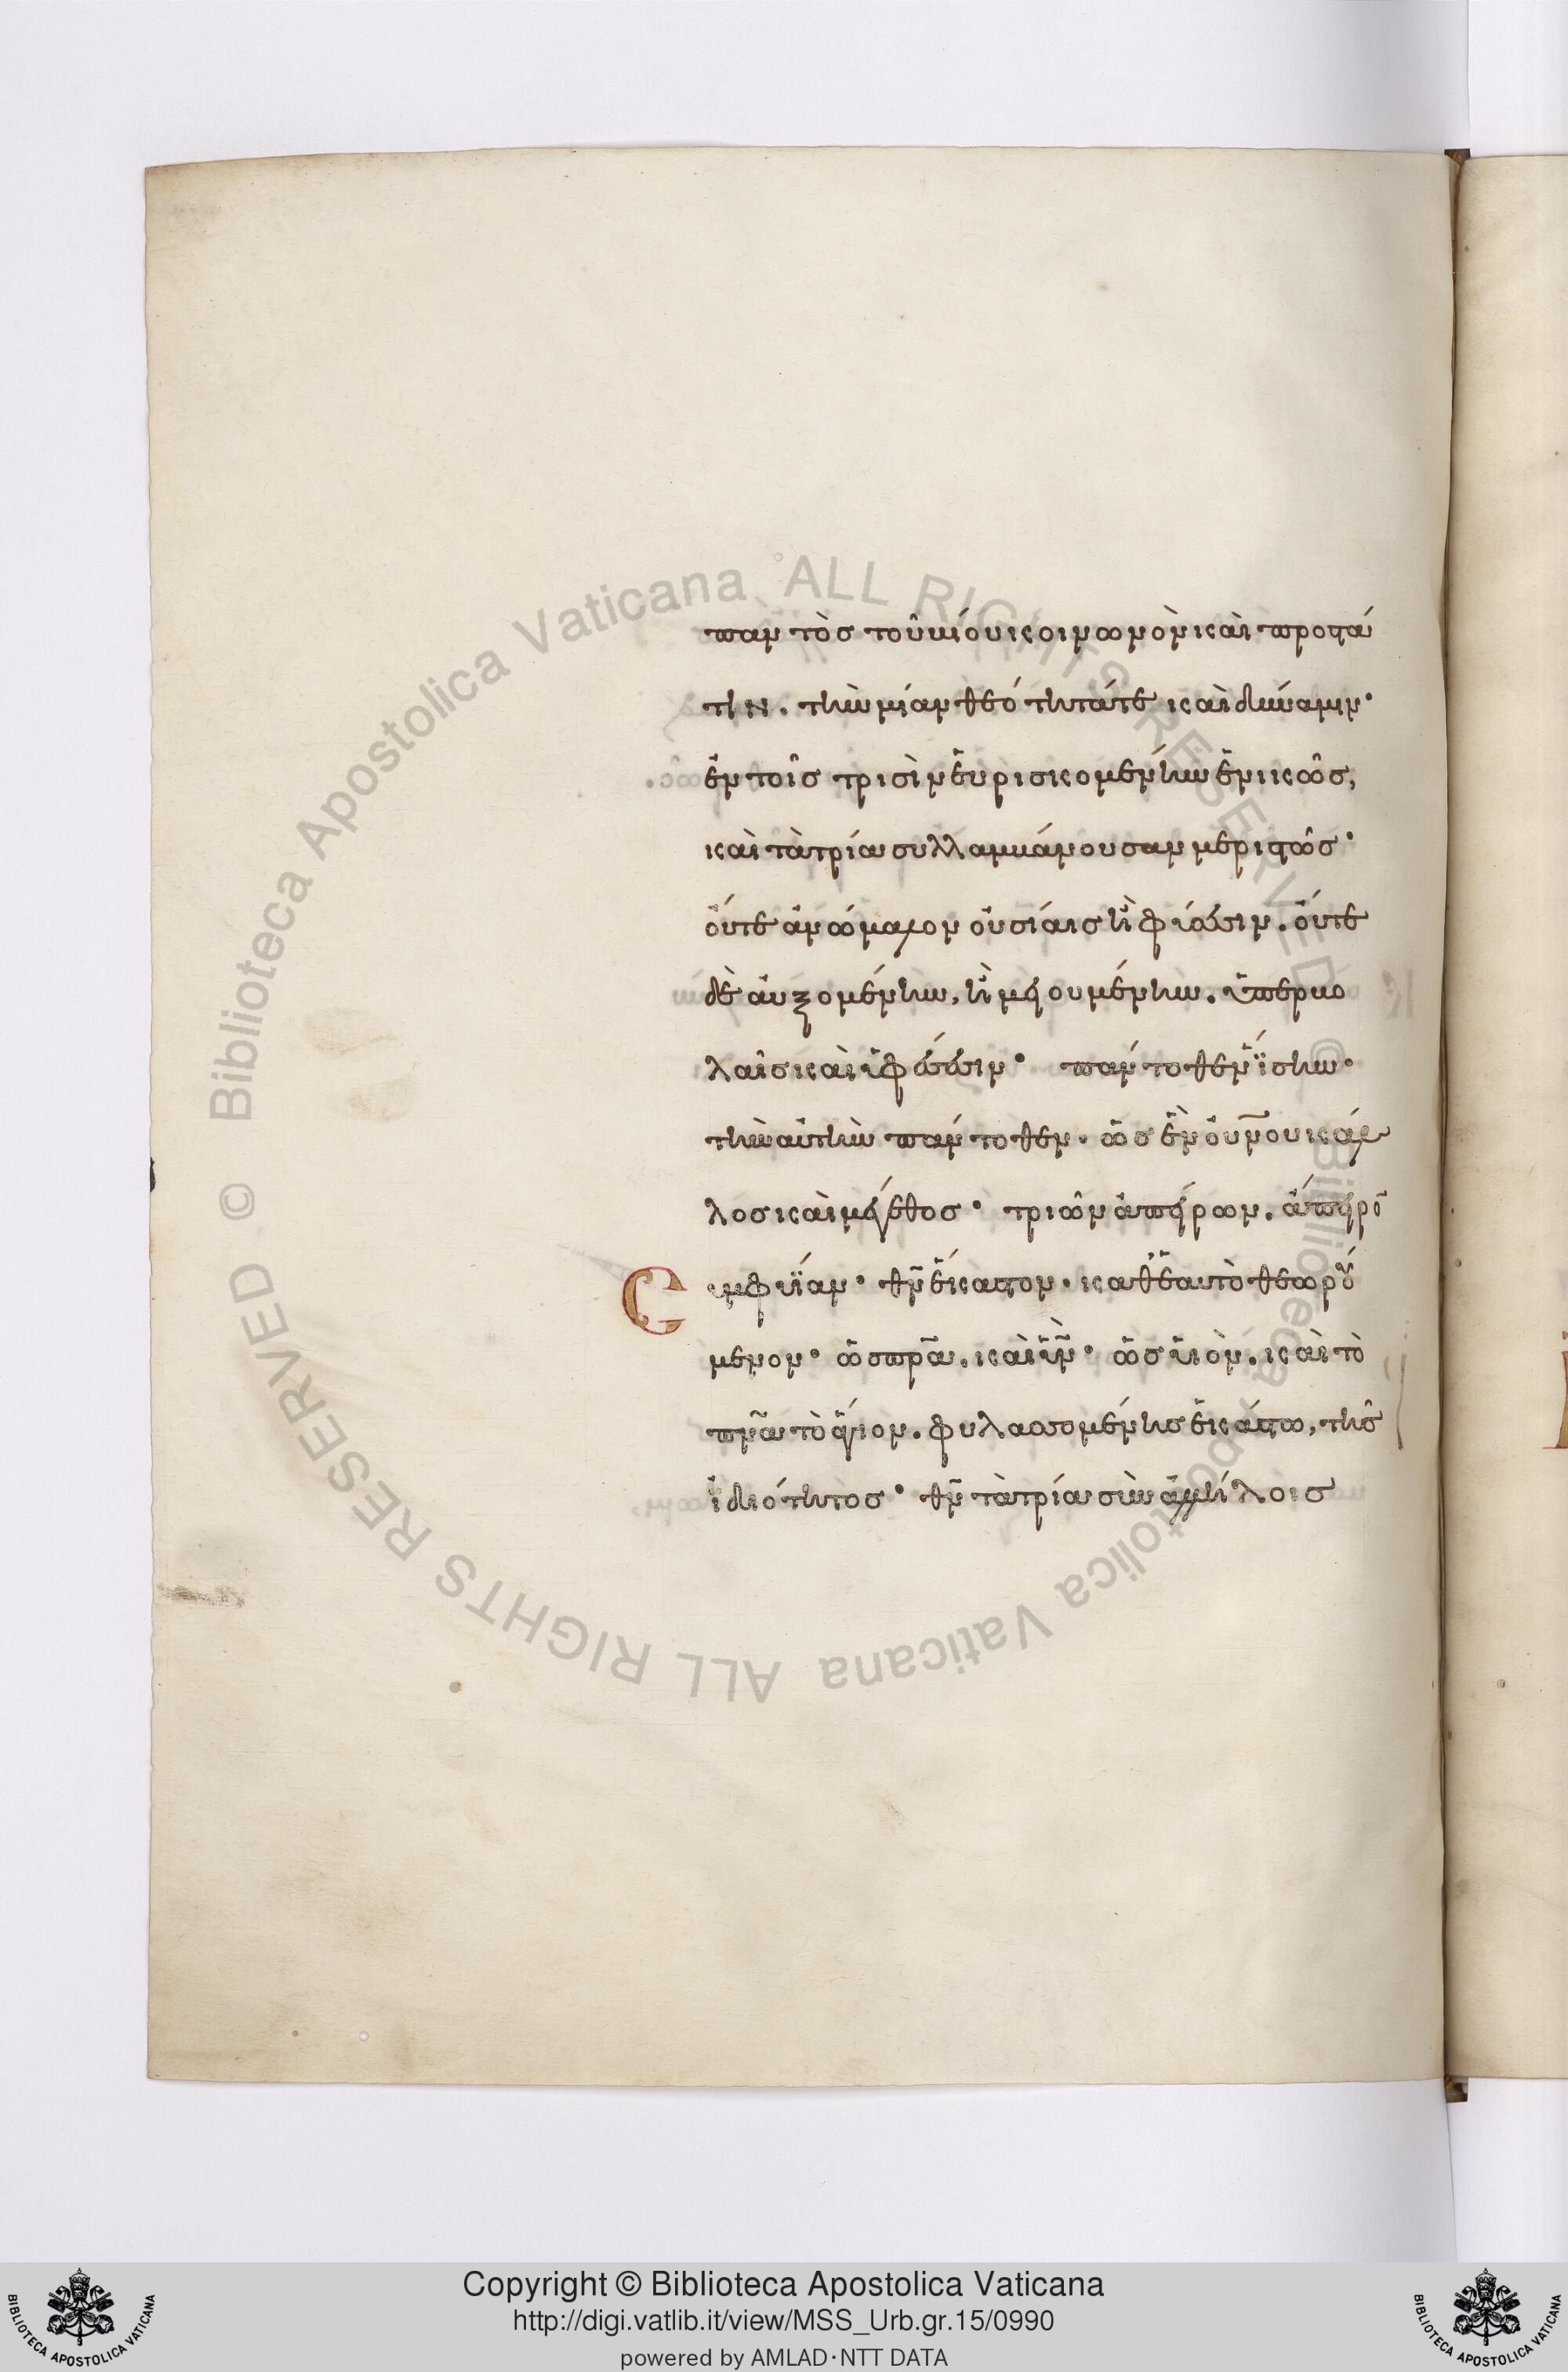 παντὸσ τοῦ βίου κοινωνὸν καὶ προστά
την. τὴν μίαν θεότητά τε καὶ δύναμιν·
ἐν τοῖσ τρισὶν εὑρισκομένην ἑνικῶσ,
καὶ τὰ τρία συλλαμβάνουσαν μεριστῶσ·
οὔτε ἀνώμαλον οὐσίαισ ἢ φύσεσιν. οὔτε
δὲ αὐξομένην, ἢ μειουμένην. ὑπερβο
λαῖσ καὶ ὑφέσεσιν· πάντοθεν ἴσην·
τὴν αὐτὴν πάντοθεν. ὡσ ἓν οὐνοῦ κάλ
λοσ καὶ μέγεθοσ· τριῶν ἀπείρων. ἄπειρο̄
Συμφυΐαν· θν̄ ἕκαστον. καθ ἑαυτὸ θεωρού
μενον· ὡσ πρ̄α. καὶ υν̄· ὡσ υἱὸν. καὶ τὸ
πν̄α τὸ ἅγιον. φυλασσομένησ ἑκάστω, τῆσ
ἰδιότητοσ· θν̄ τὰ τρία σὺν ἀλλήλοισ
Copyright © Biblioteca Apostolica Vaticana
http://digi.vatlib.it/view/MSS_Urb.gr.15/0990
powered by AMLAD·NTT DATA
BIBLIOTECA APOSTOLICA VATICANA
BIBLIOTECA APOSTOLICA VATICANA
Biblioteca Apostolica Vaticana ALL RIGHTS RESERVED ©
Biblioteca Apostolica Vaticana ALL RIGHTS RESERVED ©